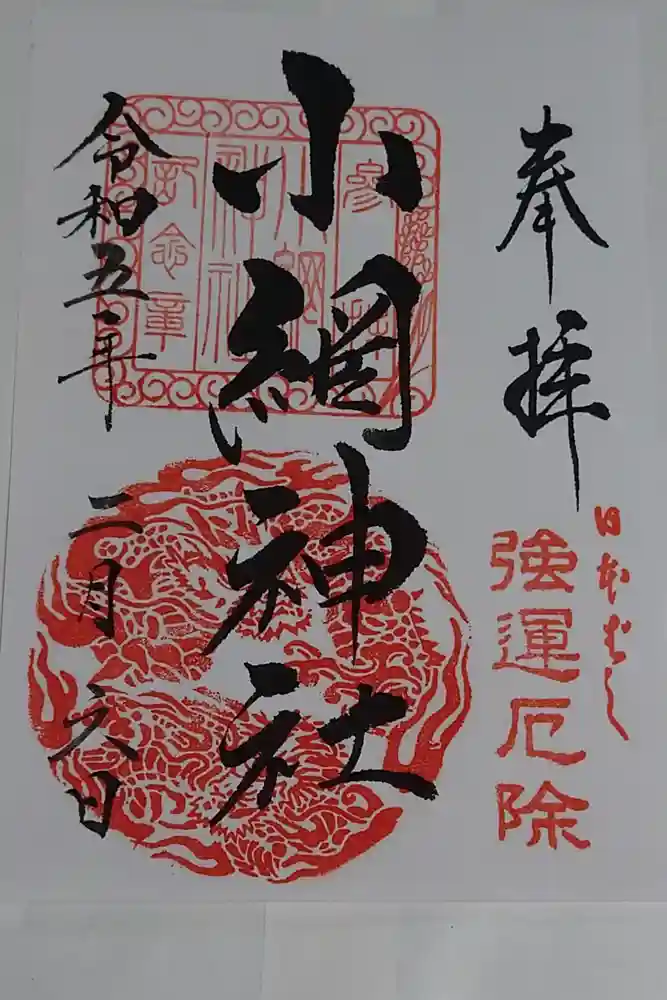 奉拝
日本ばし
強運厄除
小網神社
参拝
小網
神社
記念章
令和五年
二月六日